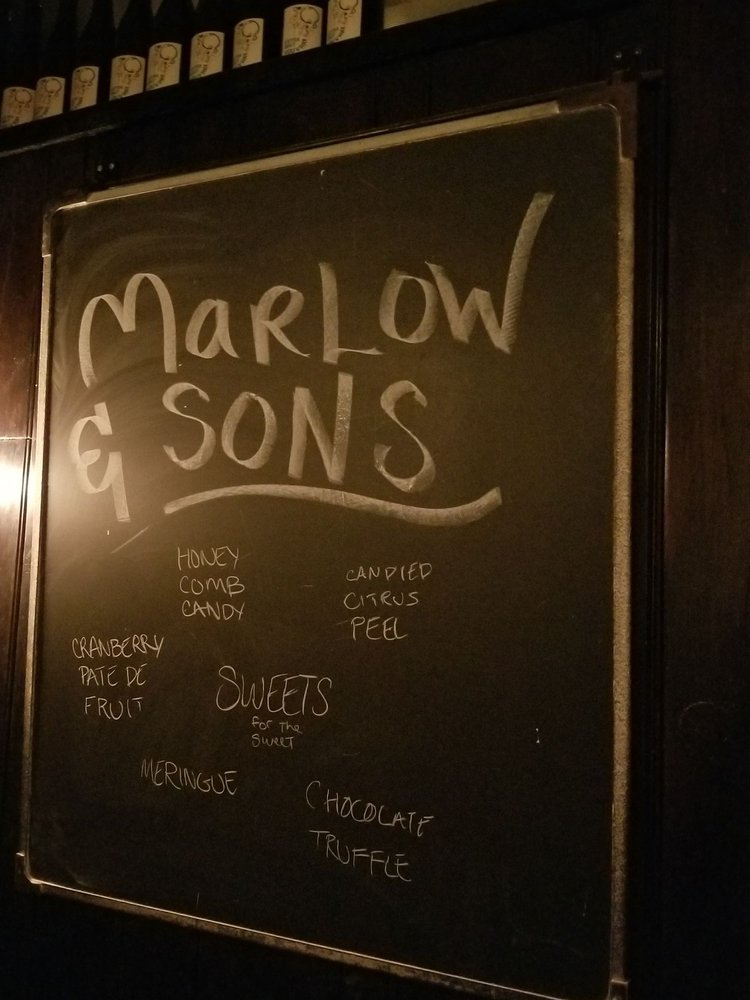 MARLOW
& SONS
HONEY
COMB
CANDY
CANDIED
CITRUS
PEEL
CRANBERRY
PATE DE
FRUIT
SWEETS
for The
SWEET
MERINGUE
CHOCOLATE
TRUFFLE